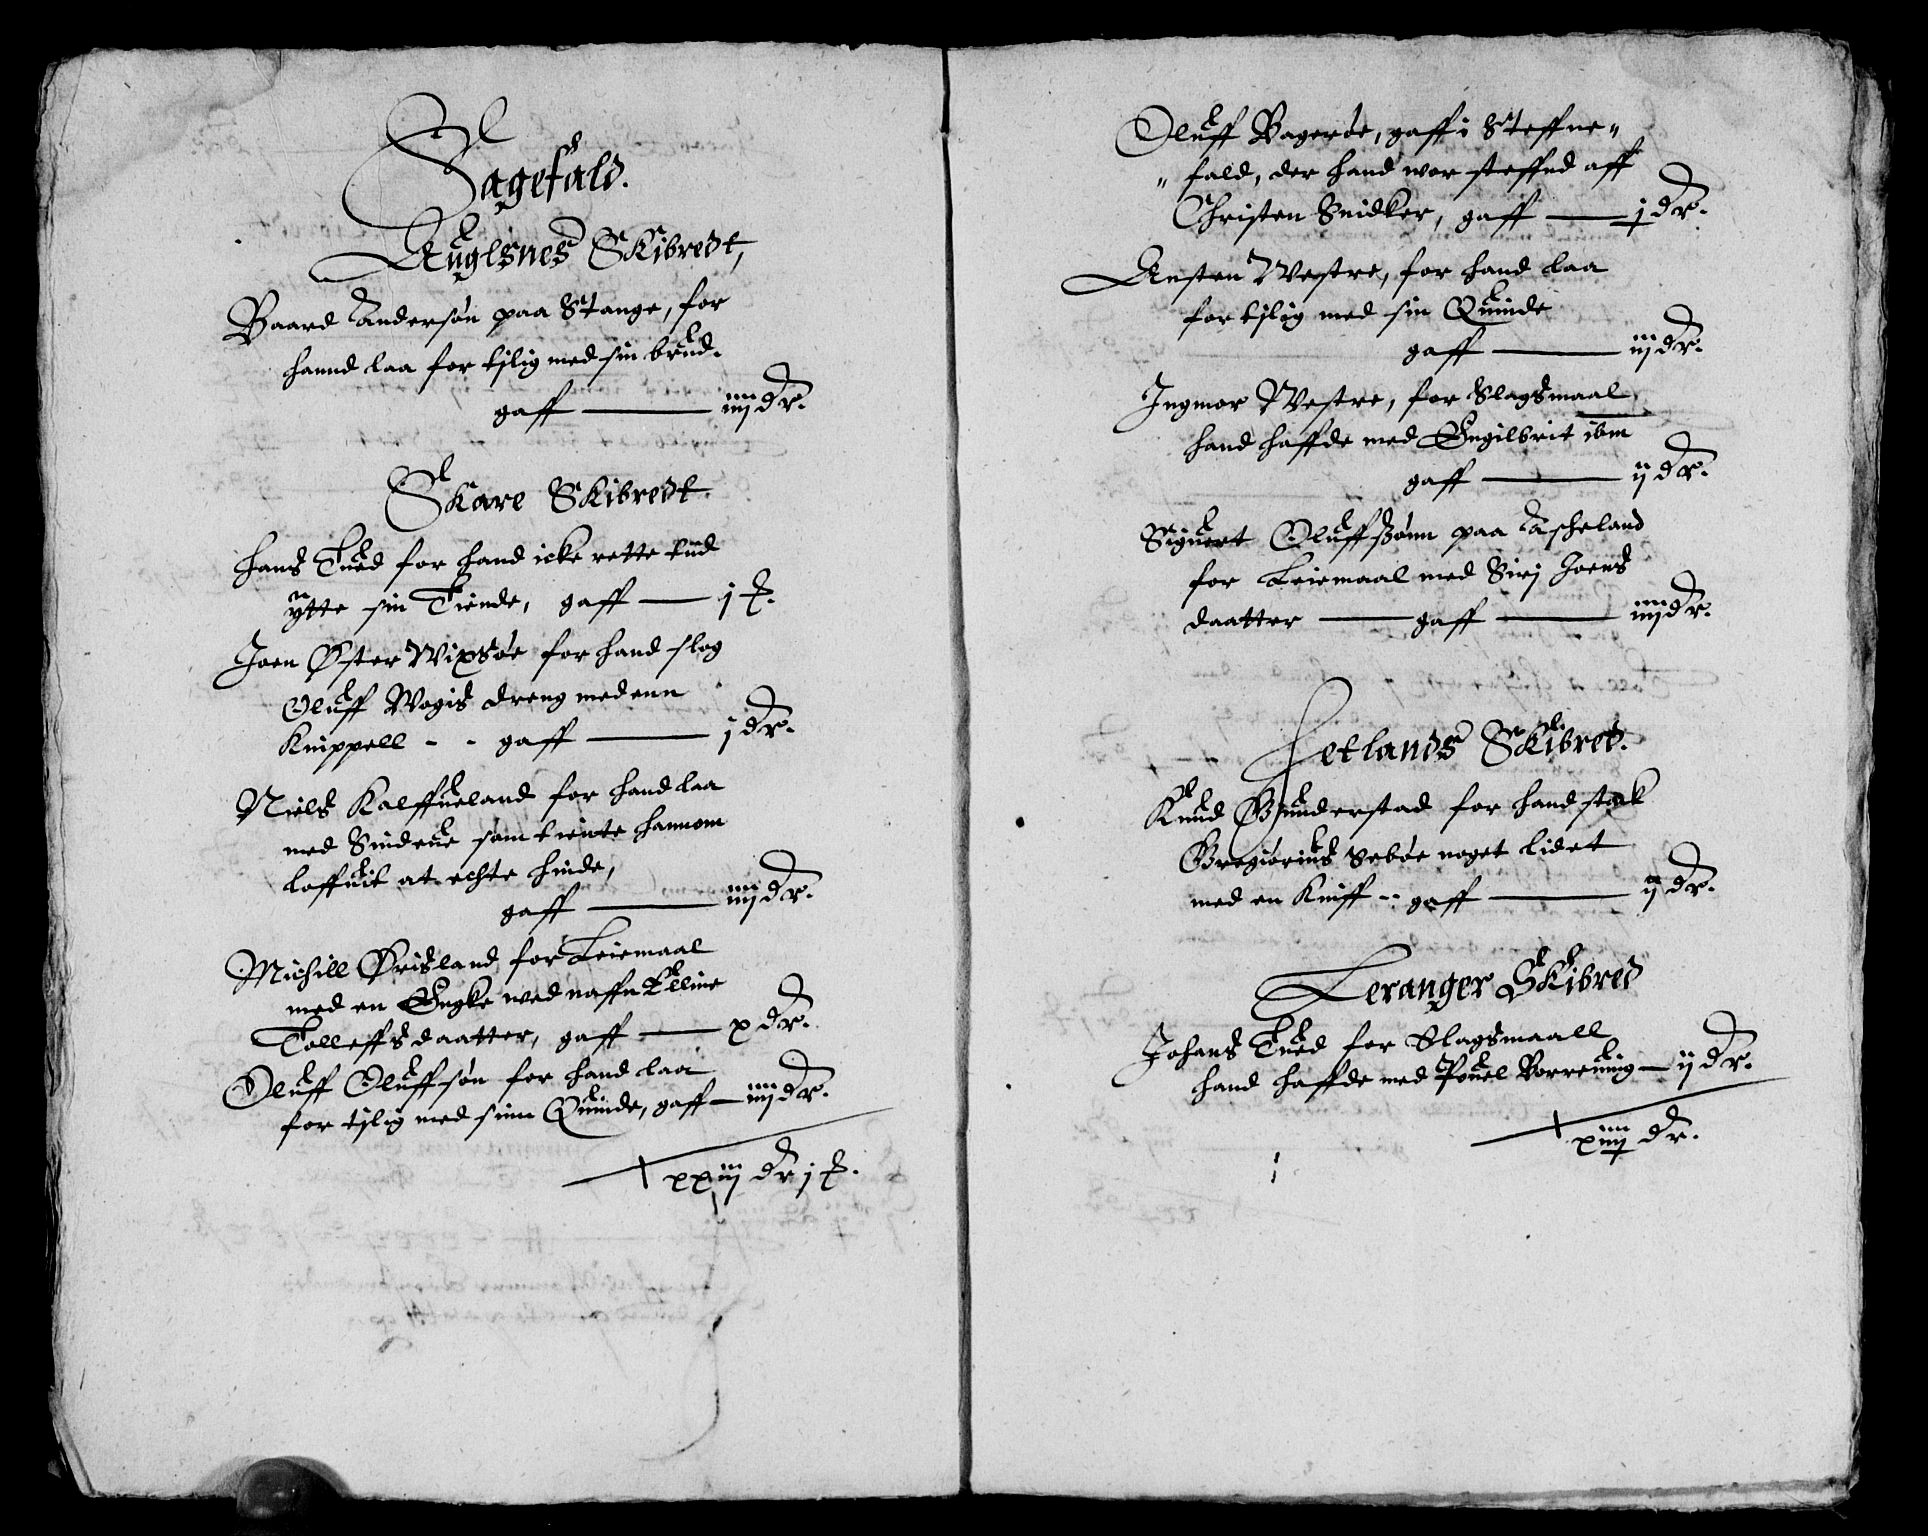 Sagefald.
Auglsnes Skibredt,
Baard Andersøn paa Stange, for
hannd laa for tilig med sin brud.
gaff — iiij dr.
Skare Skibredt
Hans Tued for hand icke rette tiid
ytte sin Tiende, gaff — j ß.
Joen Øster Wixsøe for hand slog
Oluff Wogis dreng med enn
Knippell - - gaff — j dr.
Niels Kalffueland for hand laa
med Sindeue som tiente hannom
loffuit at echte hinde,
gaff — iiij dr.
Michill Ørisland for Leiemaal
med en Engke wed naffn Elline
Tolleffs daatter, gaff — x dr.
Oluff Oluffsøn for hand laa
for tilig med sinn Quinde, gaff — iiij dr.
xxiij dr j ß.
Oluff Bagerøe, gaff i Steffne„
„ fald, der hand wor steffnd aff
Christen Snidker, gaff — j dr.
Ansten Westre, for hand laa
for tilig med sin Quinde
gaff — iij dr.
Ingmor Westre, for Slagsmaal
hand haffde med Engilbrit ibm
gaff — ij dr.
Siguert Oluffßønn paa Ascheland
for Leiemaal med Siri Joens
daatter — gaff — iiij dr.
Hetlands Skibred.
Knud Gunderstad for hand stack
Gregiorius Sebøe noget lidet
med en Kniff -- gaff — ij dr.
Leranger Skibred
Johans Tued for Slagsmaall
hand haffde med Pouel Borreuiig — ij dr.
xiiij dr.